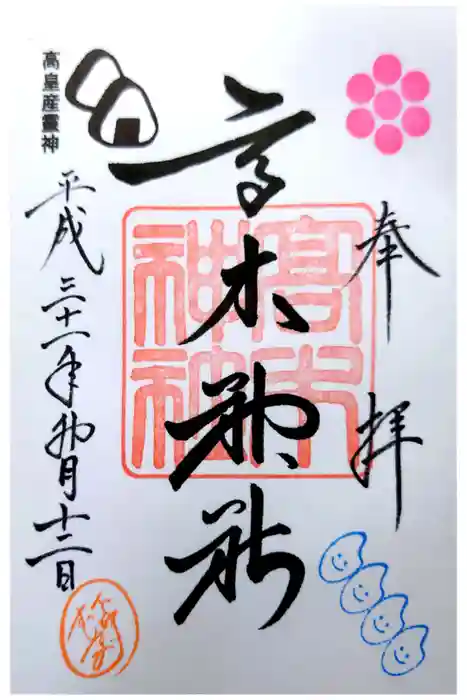 奉拝
高木神社
高木
神社
高皇産靈神
平成三十一年卯月十二日